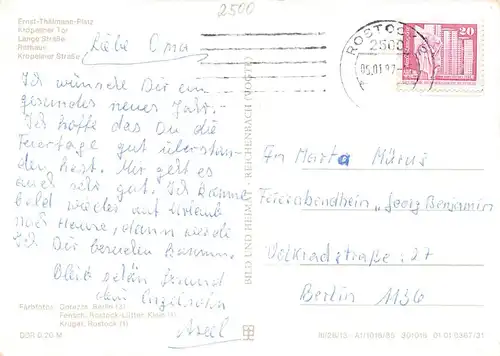 2500
Ernst-Thälmann-Platz
Kröpeliner Tor
Lange Straße
Rathaus
Kröpeliner Straße
Liebe Oma
Ich wünsche Dir ein
gesundes neues Jahr.-
Ich hoffe das Du die
Feiertage gut überstan-
den hast. Mir geht es
auch sehr gut. Ich komme
bald wieder auf Urlaub
nach Hause, dann werde
Ich Dir besuchen kommen.
Bleib schön gesund
dein Enkelsohn
Axel
Farbfotos: Darr, Berlin (3)
Fensch, Rostock-Lütten Klein (1)
Krüger, Rostock (1)
DDR 0,20 M
BILD UND HEIMAT REICHENBACH (VOGTL)
ROSTOCK
2500
05.01.87
20
Fr Marta
Feierabendheim „Georg Benjamin
Volkradstraße: 27
Berlin 1136
III/26/13 A1/1016/85 201016 01 01 0367/21